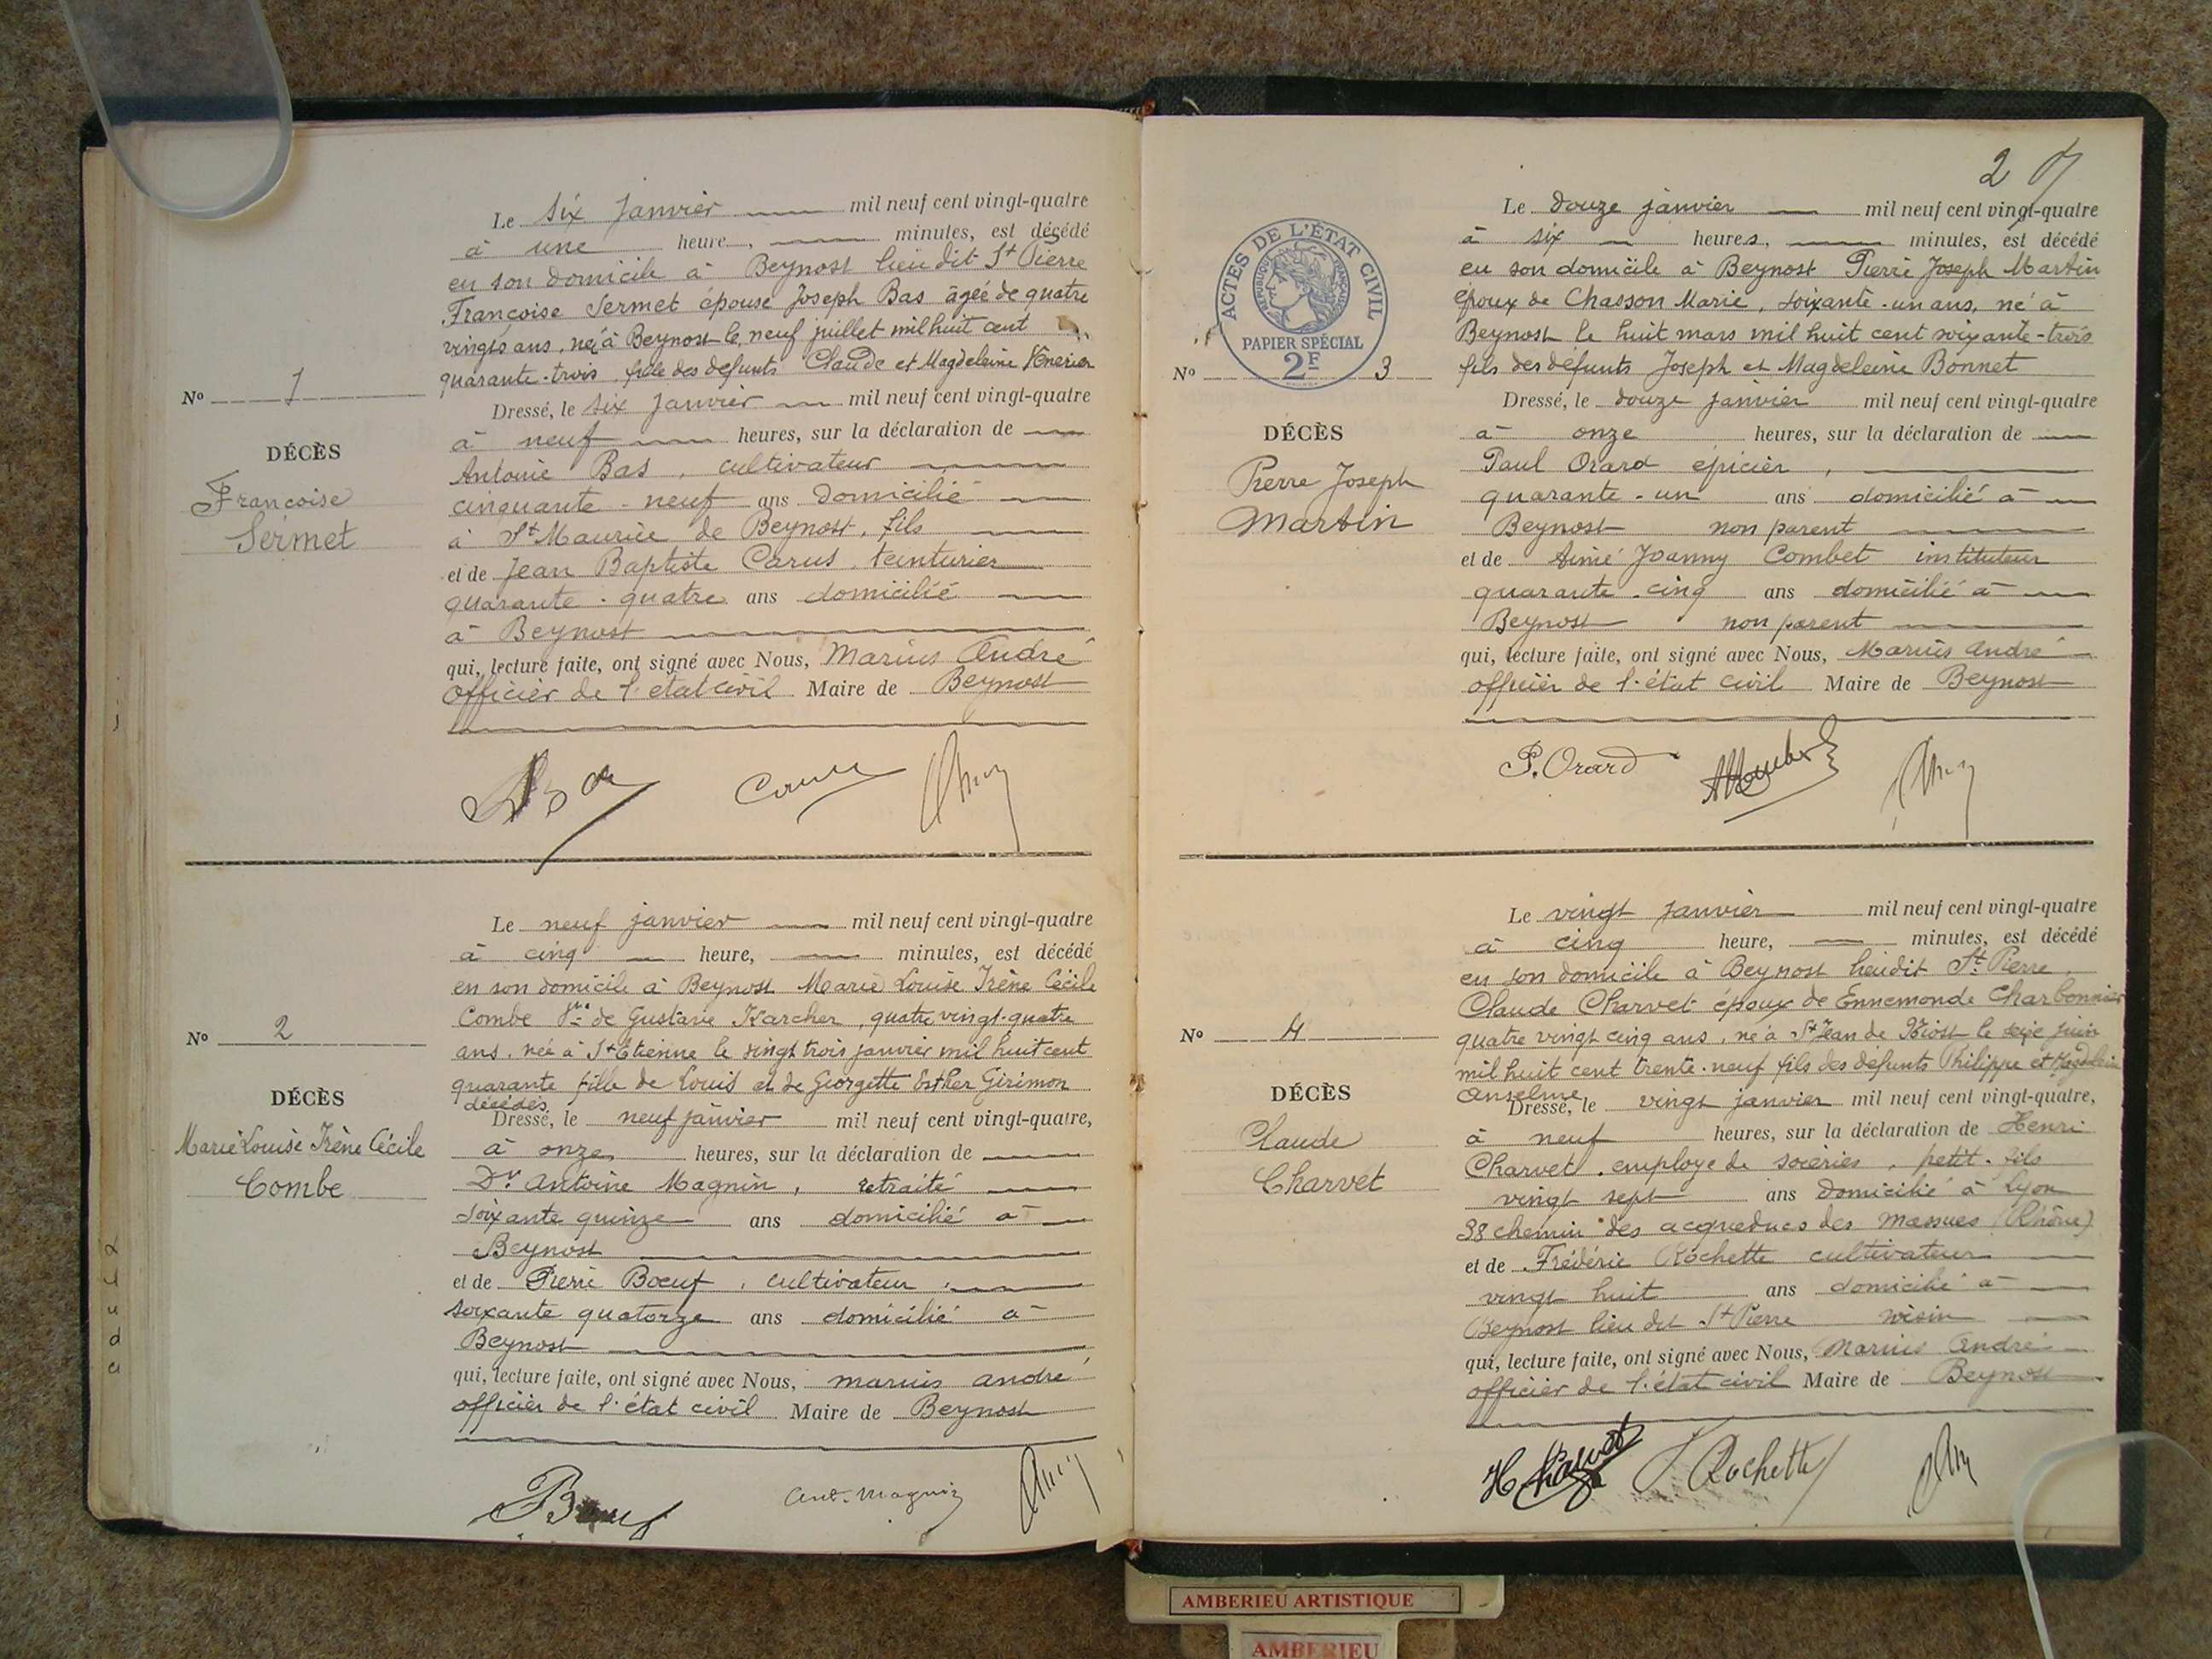 Le six janvier mil neuf cent vingt-quatre
à une heure, minutes, est décédé
en son domicile à Beynost lieu dit St Pierre
Françoise Sermet épouse Joseph Bas âgée de quatre
vingts ans, née à Beynost le neuf juillet mil huit cent
quarante-trois, fille des défunts Claude et Magdeleine
No 1
Dressé, le six janvier mil neuf cent vingt-quatre
à neuf heures, sur la déclaration de
DÉCÈS
Françoise
Sermet
Antoine Bas, cultivateur
cinquante-neuf ans domicilié
à St Maurice de Beynost, fils
et de Jean Baptiste Carus, teinturier
quarante-quatre ans domicilié
à Beynost
qui, lecture faite, ont signé avec Nous, Marius André
officier de l'état civil Maire de Beynost
Le neuf janvier mil neuf cent vingt-quatre
à cinq heure, minutes, est décédé
en son domicile à Beynost Marie Louise Irène Cécile
Combe Vve de Gustave Karcher, quatre vingt-quatre
No 2
ans, née à St Etienne le vingt trois janvier mil huit cent
quarante fille de Louis et de Georgette Esther Girimon
décédés
DÉCÈS
Marie Louise Irène Cécile
Combe
Dressé, le neuf janvier mil neuf cent vingt-quatre,
à onze heures, sur la déclaration de
Dr Antoine Magnin, retraité
soixante quinze ans domicilié à
Beynost
et de Pierre Boeuf, cultivateur,
soixante quatorze ans domicilié à
Beynost
qui, lecture faite, ont signé avec Nous, marius andré
officier de l'état civil Maire de Beynost
Boeuf Ant. Magnin
2
ACTES DE L'ÉTAT CIVIL
RÉPUBLIQUE FRANÇAISE
PAPIER SPÉCIAL
2F
Le douze janvier mil neuf cent vingt-quatre
à six heures, minutes, est décédé
en son domicile à Beynost Pierre Joseph Martin
époux de Chasson Marie, soixante-un ans, né à
Beynost le huit mars mil huit cent soixante-trois
No 3
fils des défunts Joseph et Magdeleine Bonnet
Dressé, le douze janvier mil neuf cent vingt-quatre
DÉCÈS
Pierre Joseph
Martin
à onze heures, sur la déclaration de
Paul Orard épicier,
quarante-un ans domicilié à
Beynost non parent
et de Aimé Joanny Combet instituteur
quarante-cinq ans domicilié à
Beynost non parent
qui, lecture faite, ont signé avec Nous, Marius André
officier de l'état civil Maire de Beynost
P. Orard
Le vingt janvier mil neuf cent vingt-quatre
à cinq heure, minutes, est décédé
en son domicile à Beynost lieu dit St Pierre,
Claude Charvet époux de Ennemonde Charbonnier
No 4
quatre vingt cinq ans, né à St Jean de Niost le seize juin
mil huit cent trente-neuf fils des défunts Philippe et Magdeleine
Anselme
DÉCÈS
Claude
Charvet
Dressé, le vingt janvier mil neuf cent vingt-quatre,
à neuf heures, sur la déclaration de Henri
Charvet, employé de soieries, petit-fils
vingt sept ans domicilié à Lyon
38 chemin des acqueducs des massues (Rhône)
et de Frédéric Rochette cultivateur
vingt huit ans domicilié à
Beynost lieu dit St Pierre voisin
qui, lecture faite, ont signé avec Nous, Marius André
officier de l'état civil Maire de Beynost
H Charvet F. Rochette
AMBERIEU ARTISTIQUE
AMBERIEU